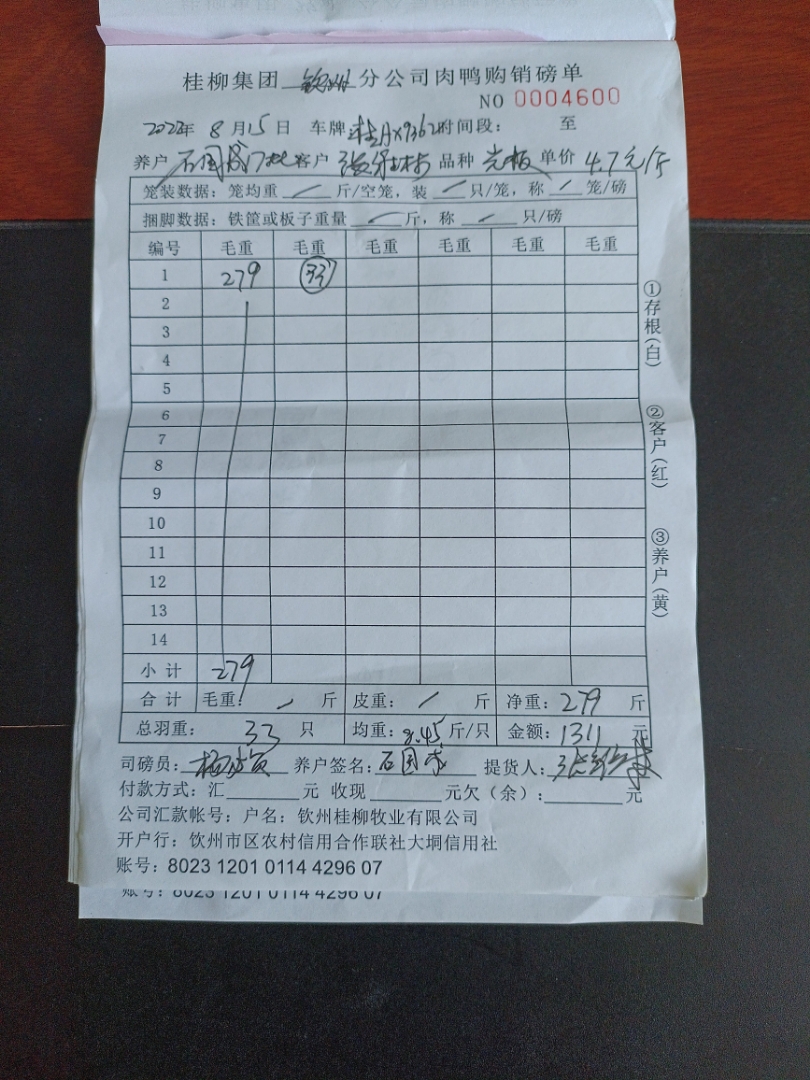 桂柳集团 钦州 分公司肉鸭购销磅单
NO 0004600
2022年 8月15日 车牌 桂AX9362 时间段: 至
养户 石国 客户 品种 光板 单价 4.7元/斤
笼装数据: 笼均重 / 斤/空笼, 装 / 只/笼, 称 / 笼/磅
捆脚数据: 铁筐或板子重量 / 斤, 称 / 只/磅
编号 毛重 毛重 毛重 毛重 毛重 毛重
1 279 33
2
3
4
5
6
7
8
9
10
11
12
13
14
小计 279
合计 毛重: / 斤 皮重: / 斤 净重: 279 斤
总羽重: 33 只 均重: 8.45 斤/只 金额: 1311 元
司磅员: 养户签名: 石国 提货人:
付款方式: 汇 元 收现 元欠(余): 元
公司汇款帐号: 户名: 钦州桂柳牧业有限公司
开户行: 钦州市区农村信用合作联社大垌信用社
账号: 8023 1201 0114 4296 07
账号: 8023 1201 0114 4296 07
①存根(白)
②客户(红)
③养户(黄)